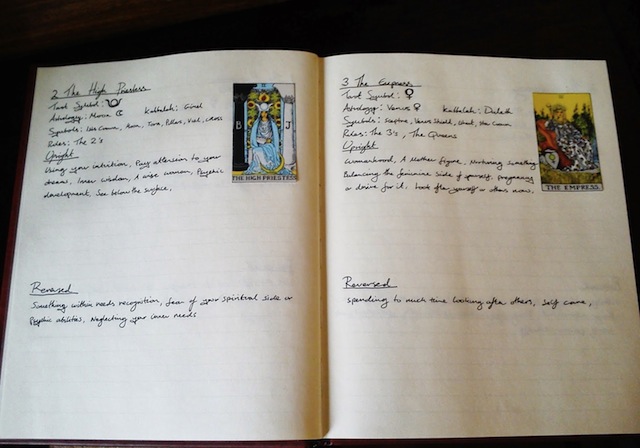 2 The High Priestess
Tarot Symbol:
Astrology: Moon ☾ Kabbalah: Gimel
Symbols: Isis Crown, Moon, Tora, Pillars, Veil, Cross
Rules: The 2's
Upright
Using your intuition, Pay attension to your
dreams, Inner wisdom, A wise woman, Psychic
development, See below the surface,
B J
THE HIGH PRIESTESS
Reversed
Something within needs recognition, fear of your spiritual side or
Psychic abilities, Neglecting your inner needs
3 The Empress
Tarot Symbol: ♀
Astrology: Venus ♀ Kabbalah: Daleth
Symbols: Sceptre, Venus Shield, Wheat, Star Crown
Rules: The 3's, The Queens
Upright
Womanhood, A Mother figure, Nurturing something
Balancing the feminine side of yourself, pregnancy
or desire for it, Look after yourself or others now,
III
THE EMPRESS.
Reversed
spending to much time looking after others, self care,